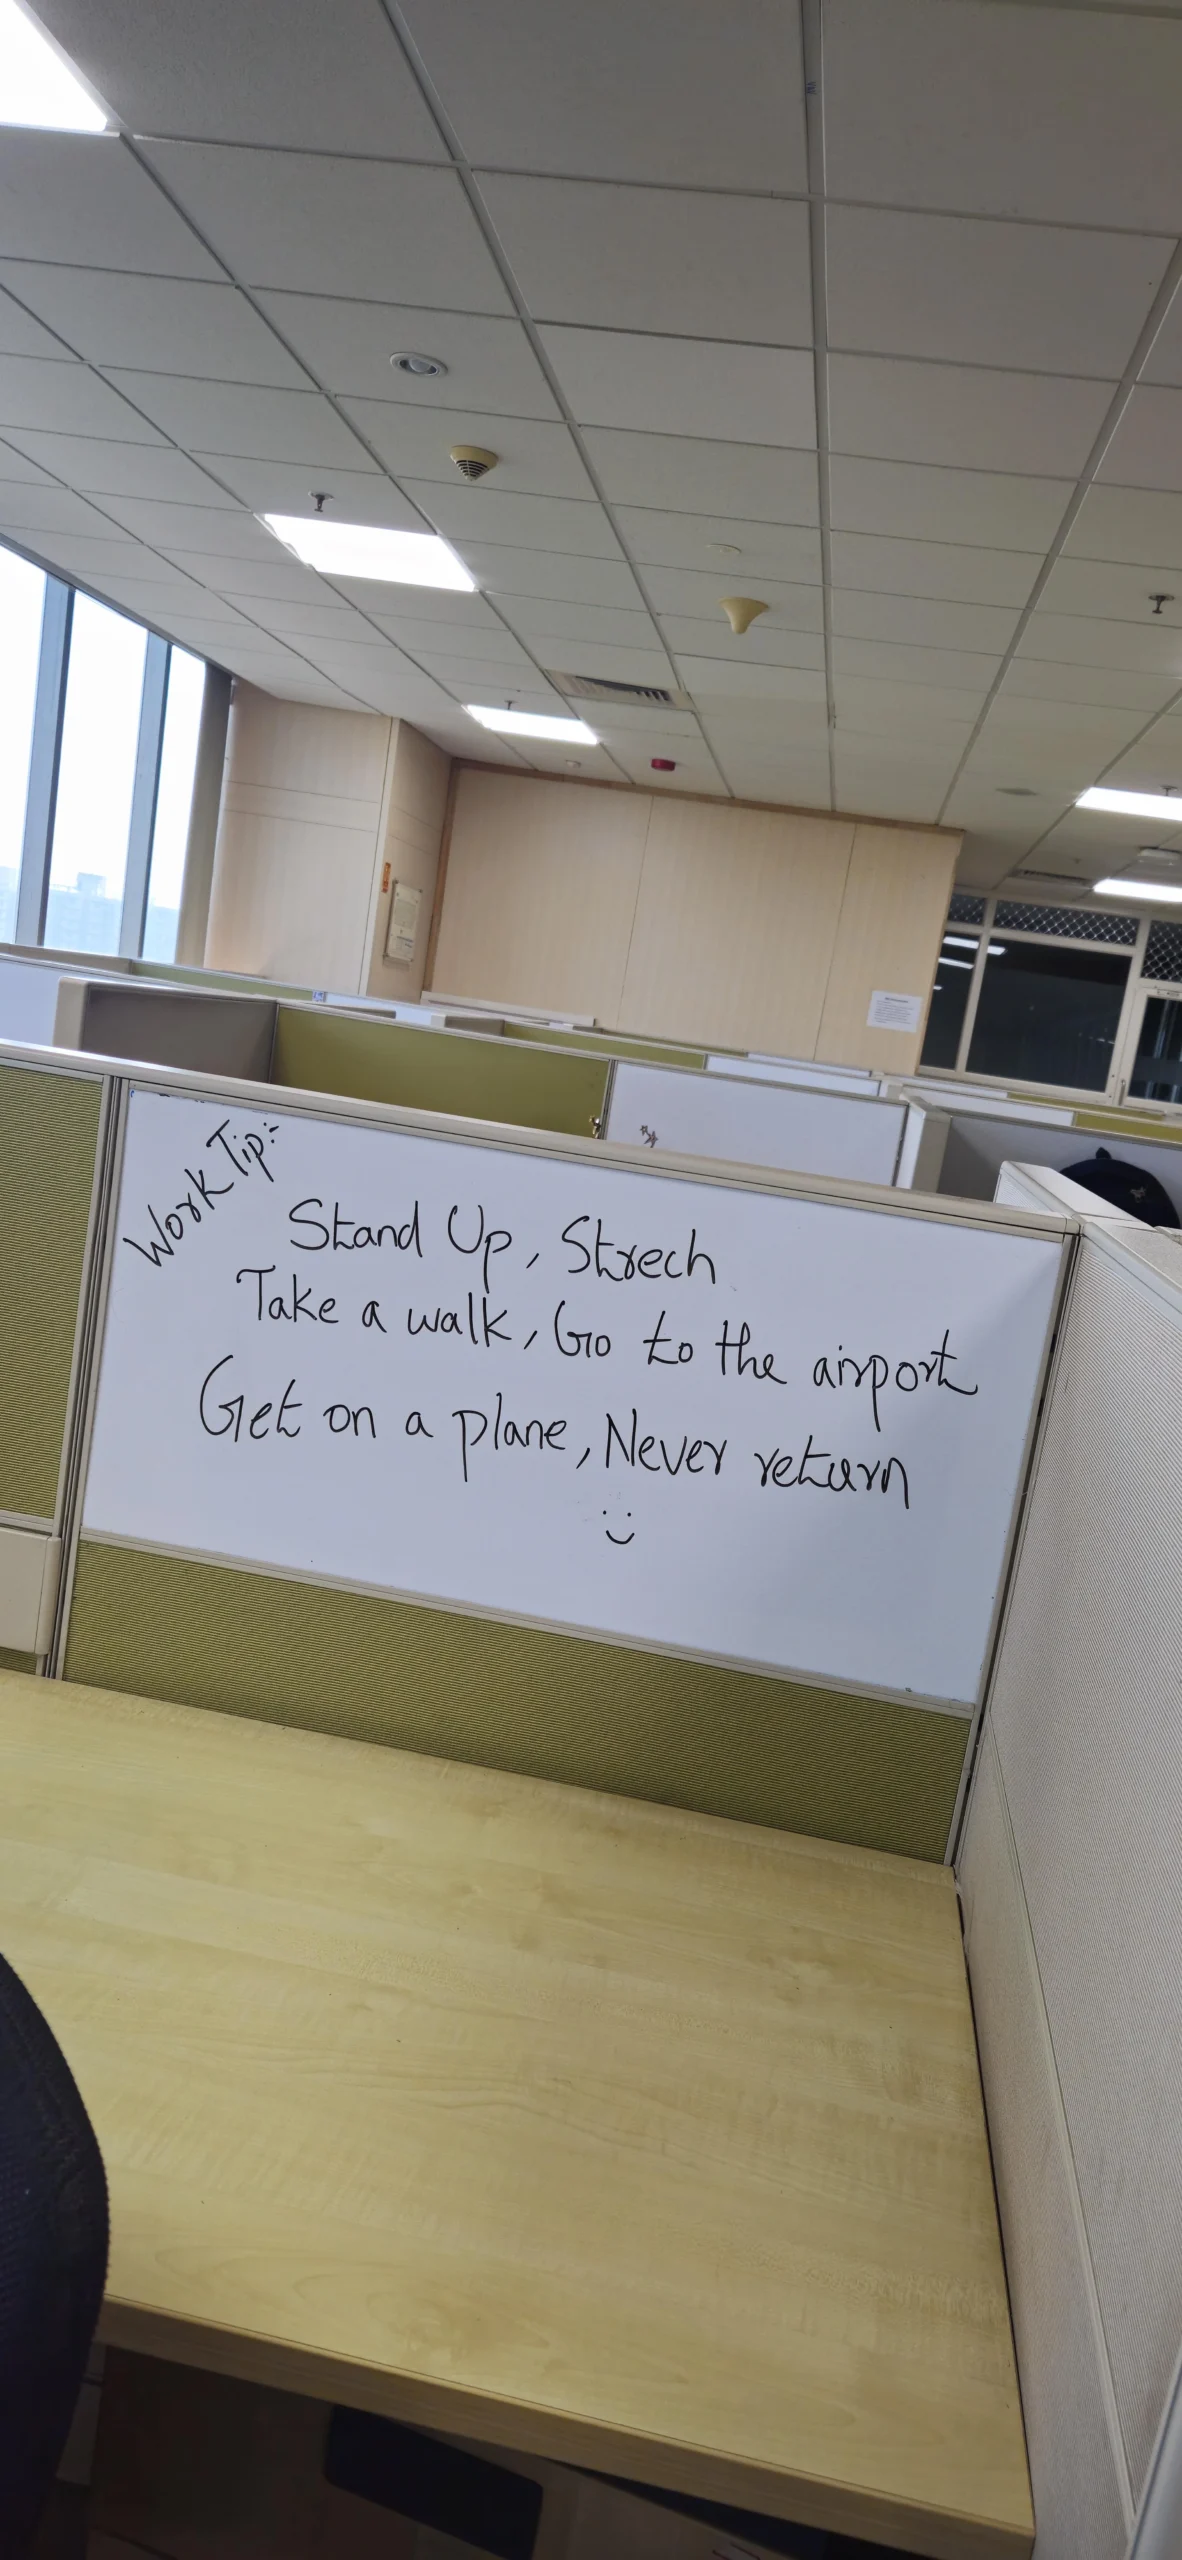 Work Tip:-
Stand Up, Strech
Take a walk, Go to the airport
Get on a plane, Never return